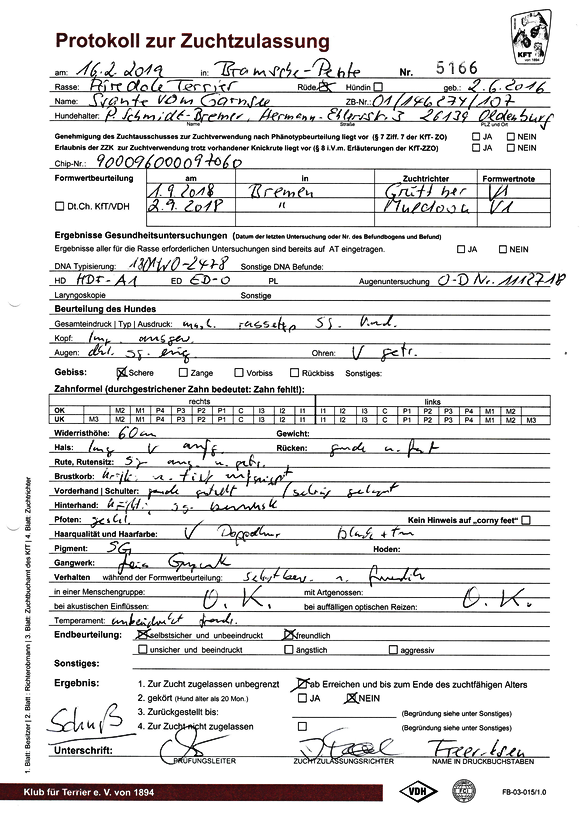 Protokoll zur Zuchtzulassung
KFT
von 1894
am: 16.2.2019 in: Bramsche-Pente Nr. 5166
Rasse: Airedale Terrier Rüde Hündin geb.: 2.6.2016
Name: vom ZB-Nr.: 01/146274/107
Hundehalter: P. Schmidt-Bremer, Hermann-Ehlersstr. 3 26139 Oldenburg
Name Straße PLZ und Ort
Genehmigung des Zuchtausschusses zur Zuchtverwendung nach Phänotypbeurteilung liegt vor (§ 7 Ziff. 7 der KfT- ZO) JA NEIN
Erlaubnis der ZZK zur Zuchtverwendung trotz vorhandener Knickrute liegt vor (§ 8 i.V.m. Erläuterungen der KfT-ZZO) JA NEIN
Chip-Nr.: 900096000097060
Formwertbeurteilung am in Zuchtrichter Formwertnote
1.9.2018 Bremen V1
Dt.Ch. KfT/VDH 2.9.2018 " Muldoon V1
Ergebnisse Gesundheitsuntersuchungen (Datum der letzten Untersuchung oder Nr. des Befundbogens und Befund)
Ergebnisse aller für die Rasse erforderlichen Untersuchungen sind bereits auf AT eingetragen. JA NEIN
DNA Typisierung: Sonstige DNA Befunde:
HD HDF-A1 ED ED-0 PL Augenuntersuchung O-D Nr. 1112718
Laryngoskopie Sonstige
Beurteilung des Hundes
Gesamteindruck | Typ | Ausdruck:
Kopf: lang
Augen: Ohren: V getr.
Gebiss: Schere Zange Vorbiss Rückbiss Sonstiges:
Zahnformel (durchgestrichener Zahn bedeutet: Zahn fehlt!):
rechts links
OK M2 M1 P4 P3 P2 P1 C I3 I2 I1 I1 I2 I3 C P1 P2 P3 P4 M1 M2
UK M3 M2 M1 P4 P3 P2 P1 C I3 I2 I1 I1 I2 I3 C P1 P2 P3 P4 M1 M2 M3
Widerristhöhe: 60 cm Gewicht:
Hals: lang V Rücken: gerade u. fest
Rute, Rutensitz: sg ang. u. getr.
Brustkorb:
Vorderhand | Schulter: gerade gestellt
Hinterhand:
Pfoten: geschl. Kein Hinweis auf „corny feet"
Haarqualität und Haarfarbe: V Doppelhaar black + tan
Pigment: SG Hoden:
Gangwerk:
Verhalten während der Formwertbeurteilung: u. freundlich
in einer Menschengruppe: mit Artgenossen:
bei akustischen Einflüssen: O.K. bei auffälligen optischen Reizen: O.K.
Temperament: unbeeindruckt
Endbeurteilung: selbstsicher und unbeeindruckt freundlich
unsicher und beeindruckt ängstlich aggressiv
Sonstiges:
Ergebnis: 1. Zur Zucht zugelassen unbegrenzt ab Erreichen und bis zum Ende des zuchtfähigen Alters
2. gekört (Hund älter als 20 Mon.) JA NEIN
3. Zurückgestellt bis: (Begründung siehe unter Sonstiges)
4. Zur Zucht nicht zugelassen (Begründung siehe unter Sonstiges)
Unterschrift:
PRÜFUNGSLEITER ZUCHTZULASSUNGSRICHTER NAME IN DRUCKBUCHSTABEN
1. Blatt: Besitzer | 2. Blatt : Richterobmann | 3. Blatt: Zuchtbuchamt des KfT | 4. Blatt: Zuchtrichter
Klub für Terrier e. V. von 1894 VDH FCI FB-03-015/1.0